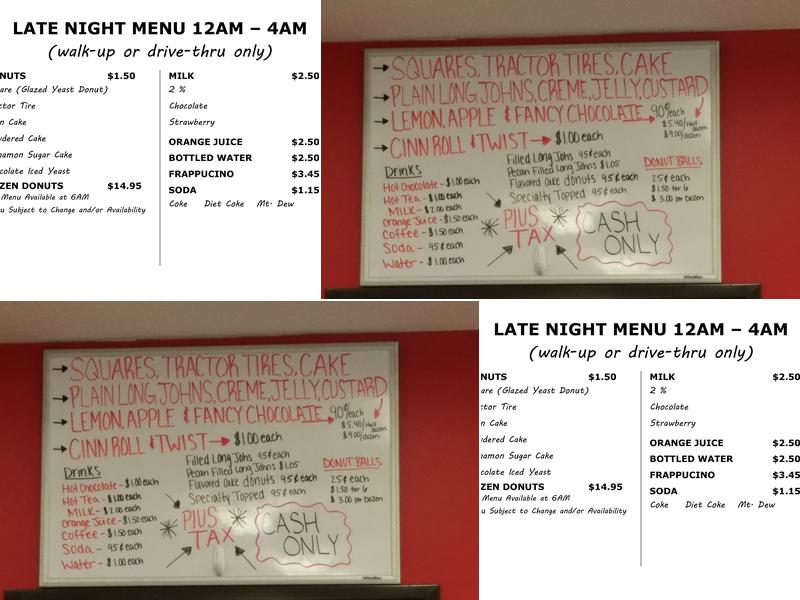 LATE NIGHT MENU 12AM – 4AM
(walk-up or drive-thru only)
NUTS $1.50
are (Glazed Yeast Donut)
ctor Tire
n Cake
wdered Cake
namon Sugar Cake
colate Iced Yeast
ZEN DONUTS $14.95
Menu Available at 6AM
u Subject to Change and/or Availability
MILK $2.50
2 %
Chocolate
Strawberry
ORANGE JUICE $2.50
BOTTLED WATER $2.50
FRAPPUCINO $3.45
SODA $1.15
Coke Diet Coke Mt. Dew
SQUARES, TRACTOR TIRES, CAKE
PLAIN LONG JOHNS, CREME, JELLY, CUSTARD
LEMON, APPLE & FANCY CHOCOLATE 90¢/each
$5.40/Half dozen
$9.00/dozen
CINN ROLL & TWIST → $1.00 each
Filled Long Johns 95¢ each
Pecan Filled Long Johns $1.05
Flavored Cake donuts 95¢ each
Specialty Topped 95¢ each
Drinks
Hot Chocolate - $1.00 each
Hot Tea - $1.00 each
MILK - $2.00 each
Orange Juice - $1.50 each
Coffee - $1.50 each
Soda - 95¢ each
Water - $1.00 each
DONUT BALLS
25¢ each
$1.50 for 6
$3.00 per Dozen
PLUS
TAX
CASH
ONLY
SQUARES, TRACTOR TIRES, CAKE
PLAIN LONG JOHNS, CREME, JELLY, CUSTARD
LEMON, APPLE & FANCY CHOCOLATE 90¢/each
$5.40/Half dozen
$9.00/dozen
CINN ROLL & TWIST → $1.00 each
Filled Long Johns 95¢ each
Pecan Filled Long Johns $1.05
Flavored Cake donuts 95¢ each
Specialty Topped 95¢ each
Drinks
Hot Chocolate - $1.00 each
Hot Tea - $1.00 each
MILK - $2.00 each
Orange Juice - $1.50 each
Coffee - $1.50 each
Soda - 95¢ each
Water - $1.00 each
DONUT BALLS
25¢ each
$1.50 for 6
$3.00 per Dozen
PLUS
TAX
CASH
ONLY
LATE NIGHT MENU 12AM – 4AM
(walk-up or drive-thru only)
NUTS $1.50
are (Glazed Yeast Donut)
ctor Tire
n Cake
wdered Cake
namon Sugar Cake
colate Iced Yeast
ZEN DONUTS $14.95
Menu Available at 6AM
u Subject to Change and/or Availability
MILK $2.50
2 %
Chocolate
Strawberry
ORANGE JUICE $2.50
BOTTLED WATER $2.50
FRAPPUCINO $3.45
SODA $1.15
Coke Diet Coke Mt. Dew